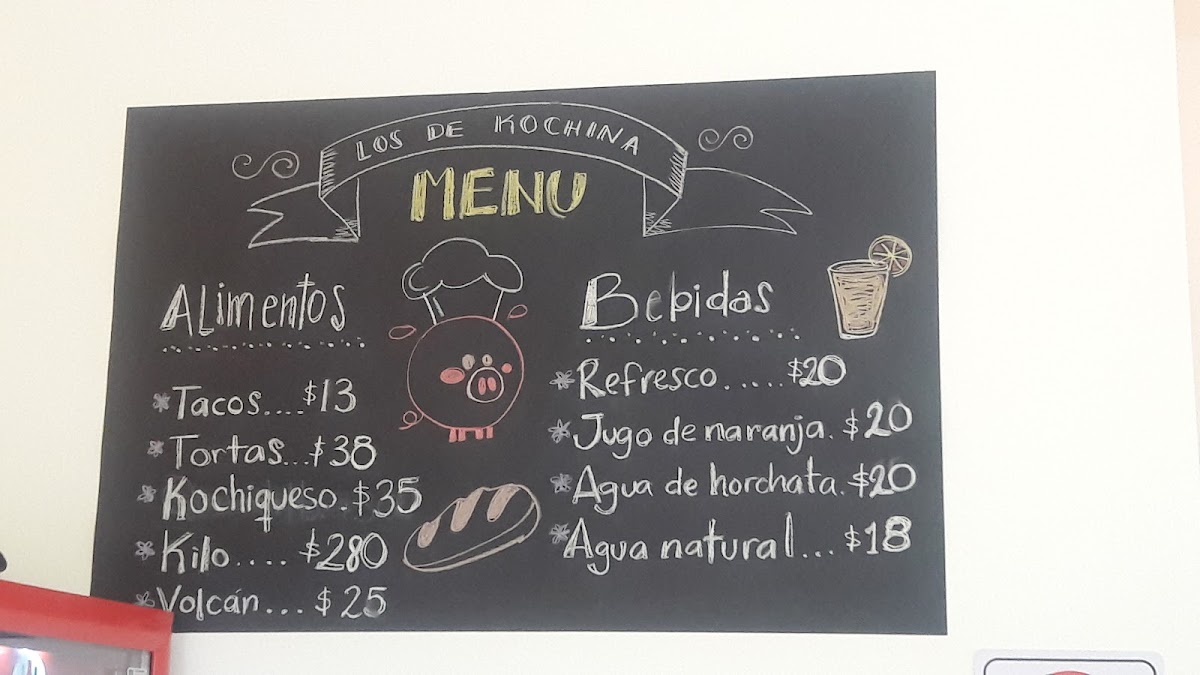 LOS DE KOCHINA
MENU
ALimentos
Tacos....$13
Tortas...$38
Kochiqueso.$35
Kilo.... $280
Volcán... $25
Bebidas
Refresco......$20
Jugo de naranja.$20
Agua de horchata.$20
Agua natural...$18